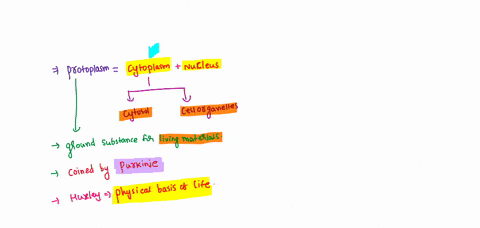 ⇒ Protoplasm = Cytoplasm + Nucleus
Cytosol Cell organelles
→ ground substance for living materials
→ coined by Purkinje
→ Huxley ⇒ physical basis of life